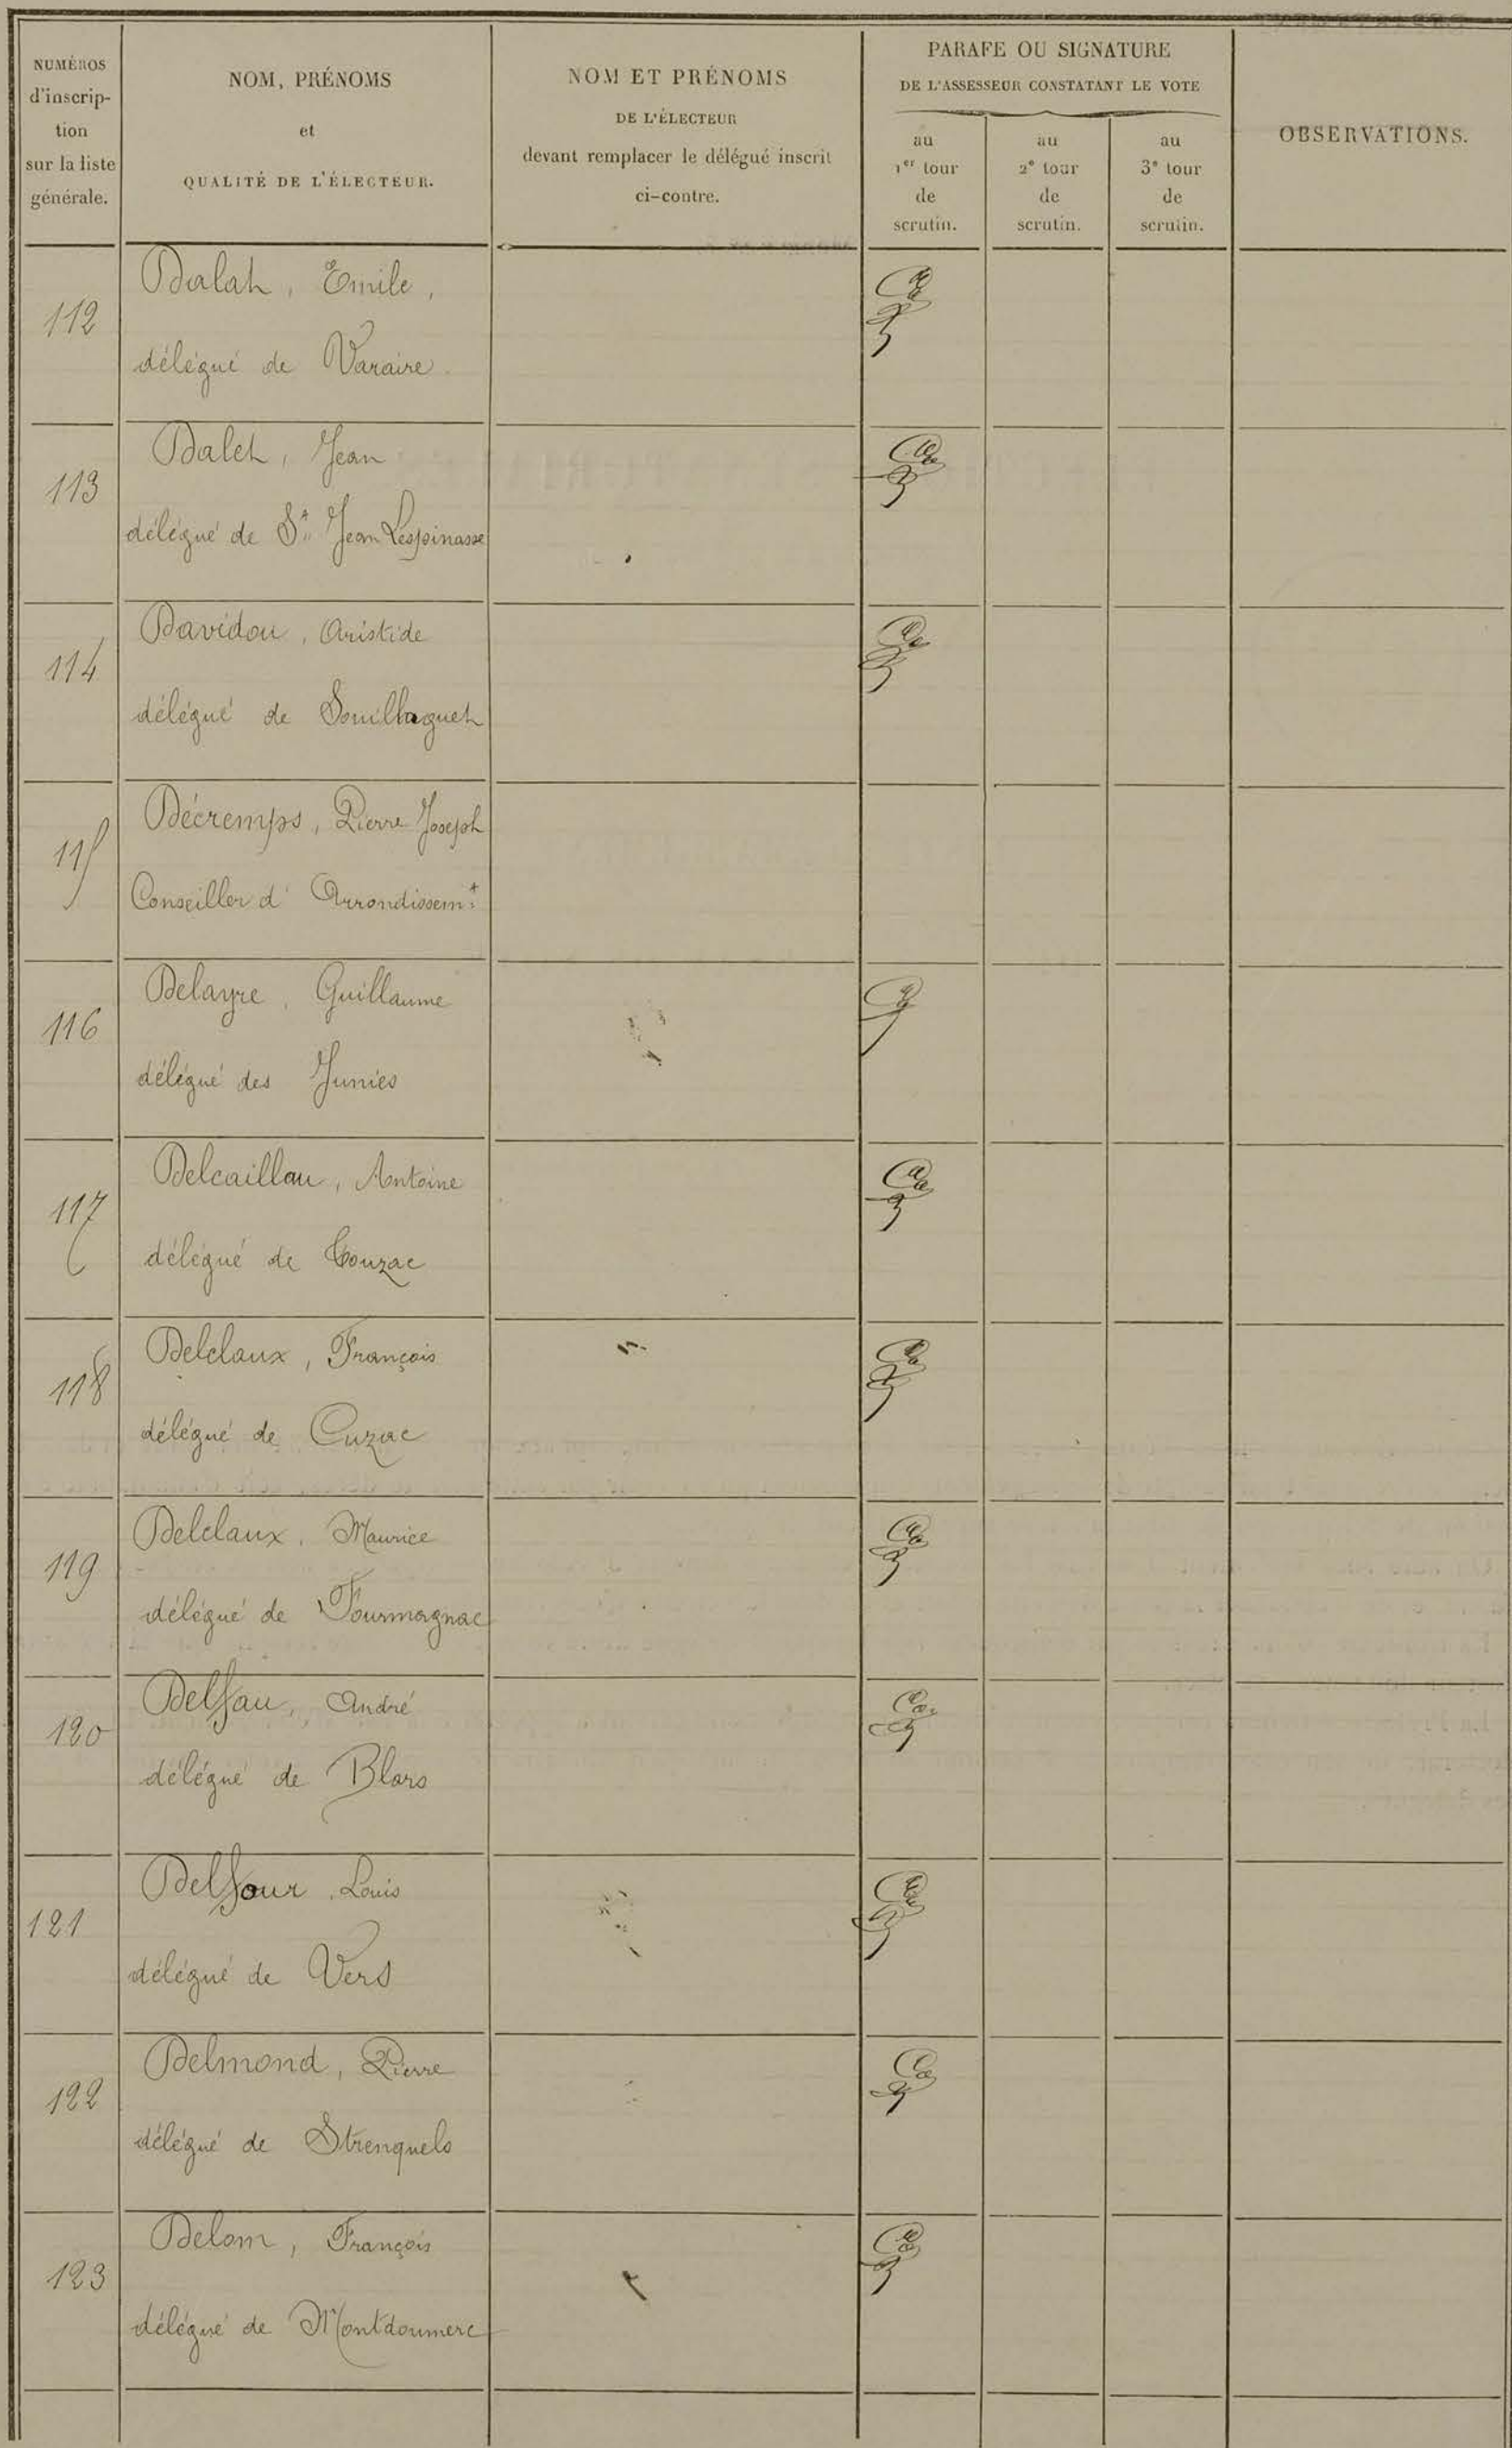 NUMÉROS
d'inscrip-
tion
sur la liste
générale.
NOM, PRÉNOMS
et
QUALITÉ DE L'ÉLECTEUR.
NOM ET PRÉNOMS
DE L'ÉLECTEUR
devant remplacer le délégué inscrit
ci-contre.
PARAFE OU SIGNATURE
DE L'ASSESSEUR CONSTATANT LE VOTE
au
1er tour
de
scrutin.
au
2e tour
de
scrutin.
au
3e tour
de
scrutin.
OBSERVATIONS.
112
Dalat, Emile,
délégué de Varaire.
113
Dalet, Jean
délégué de St Jean Lespinasse
114
Davidou, Aristide
délégué de Souillaguet
115
Décremps, Pierre Joseph
Conseiller d'Arrondissemt
116
Delayre, Guillaume
délégué des Junies
117
Delcaillau, Antoine
délégué de Touzac
118
Delclaux, François
délégué de Cuzac
119
Delclaux, Maurice
délégué de Fourmagnac
120
Delfau, André
délégué de Blars
121
Delfour, Louis
délégué de Vers
122
Delmond, Pierre
délégué de Strenquels
123
Delom, François
délégué de Montdoumerc